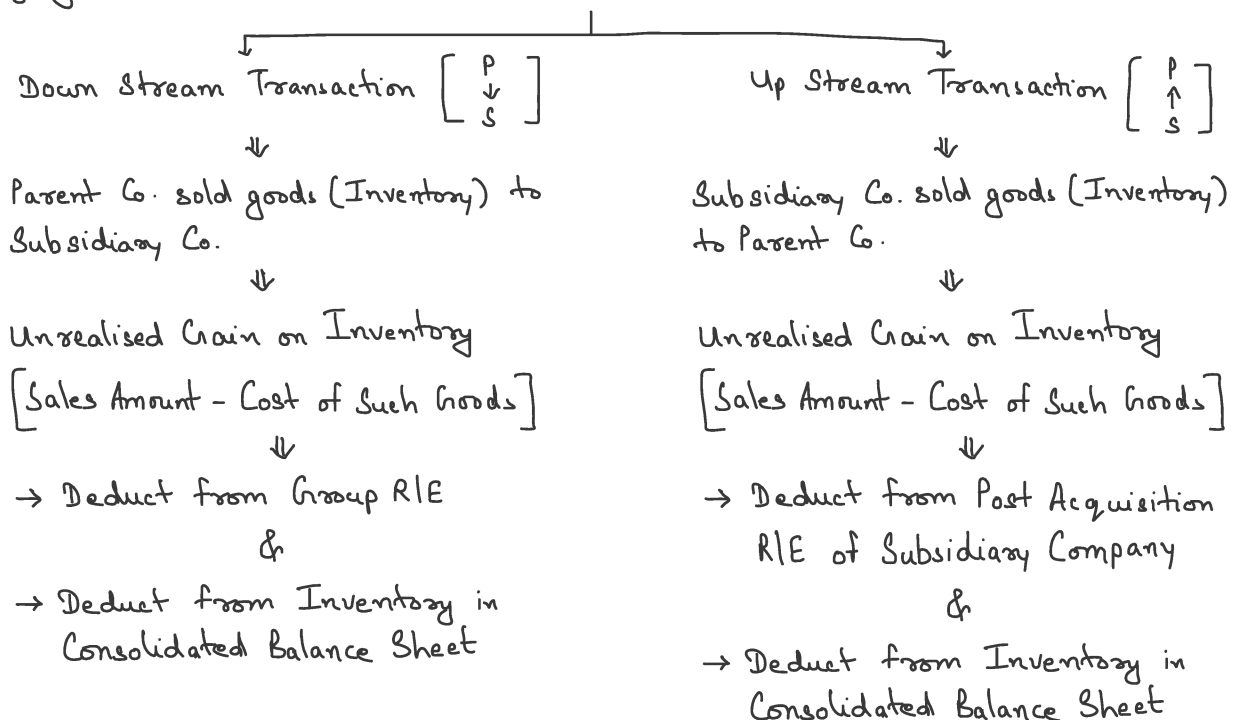 Down Stream Transaction [ P ↓ S ]
⇓
Parent Co. sold goods (Inventory) to
Subsidiary Co.
⇓
Unrealised Gain on Inventory
[Sales Amount - Cost of Such Goods]
⇓
→ Deduct from Group R/E
&
→ Deduct from Inventory in
Consolidated Balance Sheet
Up Stream Transaction [ P ↑ S ]
⇓
Subsidiary Co. sold goods (Inventory)
to Parent Co.
⇓
Unrealised Gain on Inventory
[Sales Amount - Cost of Such Goods]
⇓
→ Deduct from Post Acquisition
R/E of Subsidiary Company
&
→ Deduct from Inventory in
Consolidated Balance Sheet